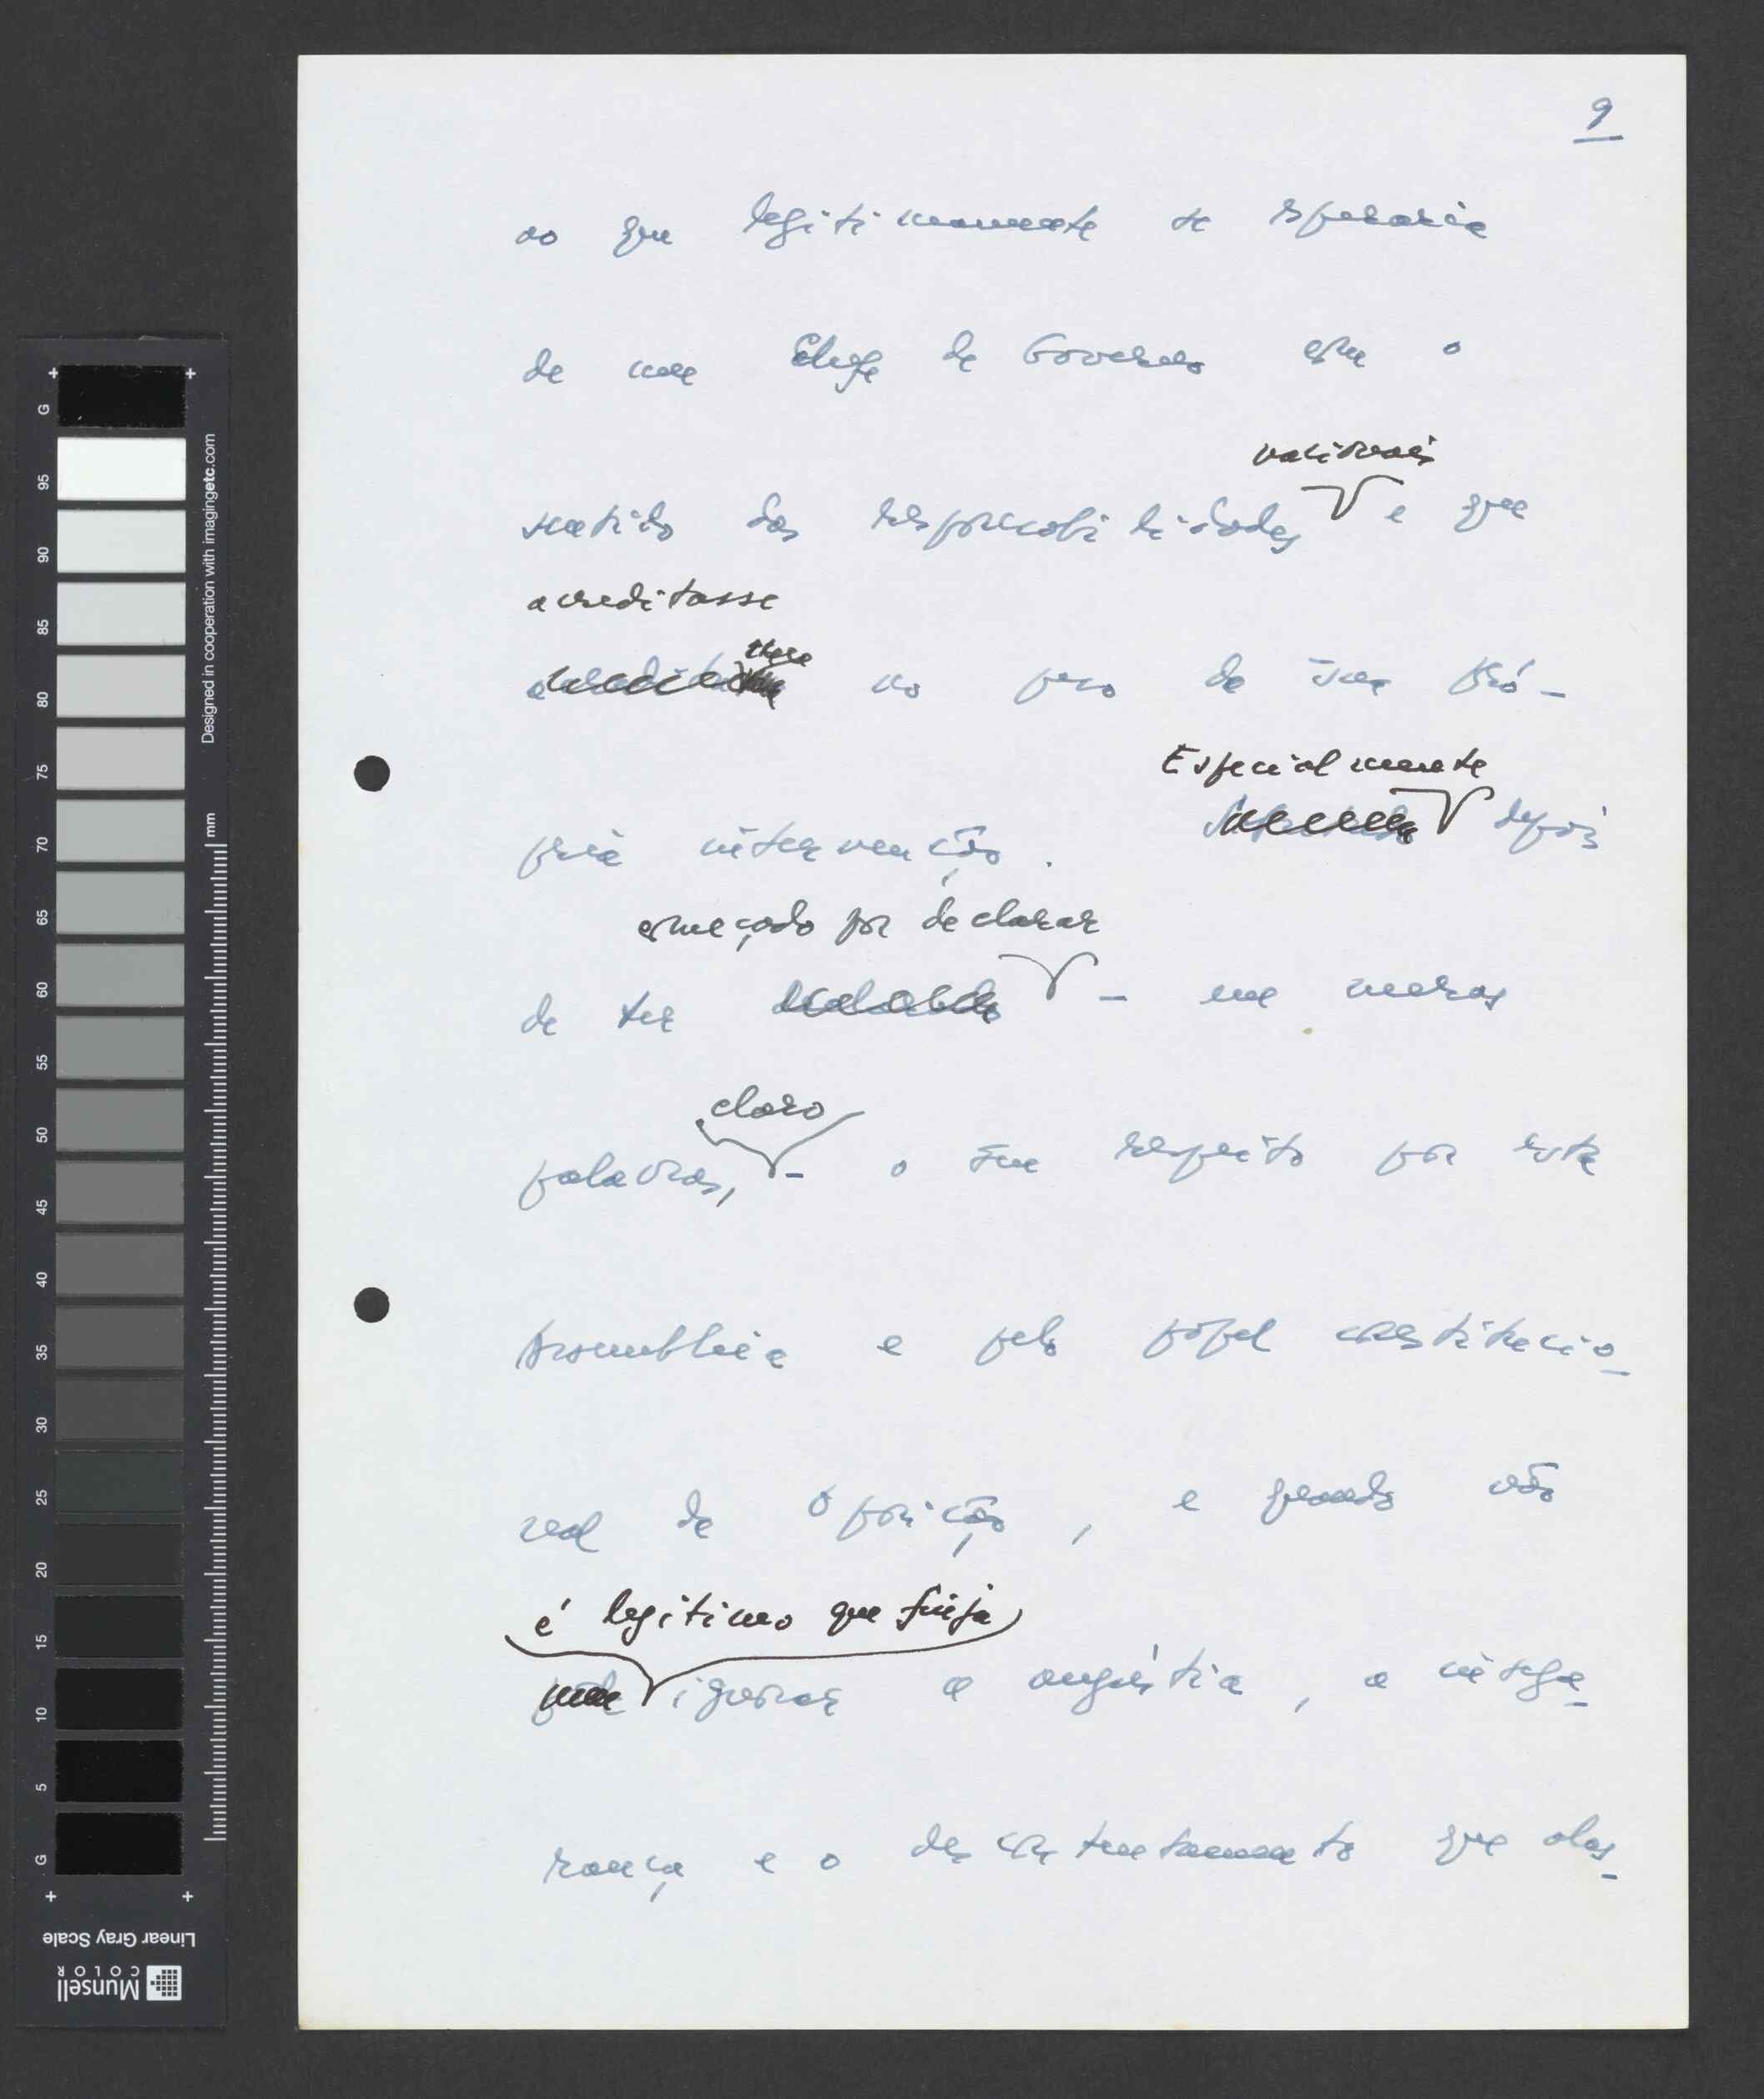 9
ao que legitimamente se esperaria
de um Chefe de Governo com o
nacionais
sentido das responsabilidades e que
acreditasse
no peso da sua pró-
Especialmente
pria intervenção. depois
começado por declarar
de ter - em meras
claro
palavras, - o seu respeito por esta
Assembleia e pelo papel constitucio-
nal da Oposição, e quando não
é legitimo que finja
ignorar a angústia, a insegu-
rança e o descontentamento que alas-
G
95
90
85
80
75
70
65
60
55
50
45
40
35
30
25
20
15
10
5
G
Designed in cooperation with imagingetc.com
mm
Linear Gray Scale
Munsell
COLOR